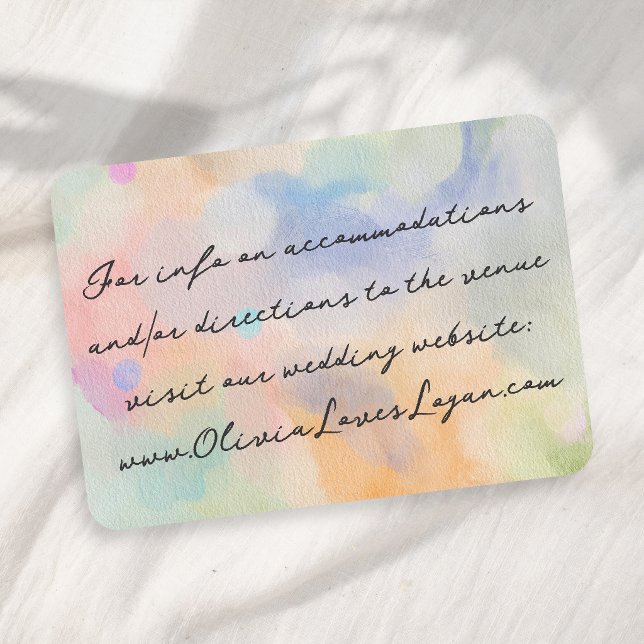 For info on accommodations
and/or directions to the venue
visit our wedding website:
www.OliviaLovesLogan.com